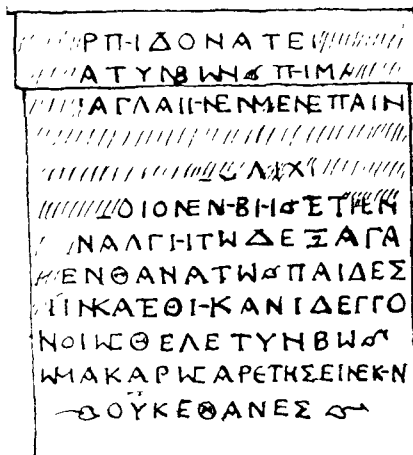 ΡΠΙΔΟΝΑΤΕΙ
ΑΤΥΝΒΩΝ ΠΙΜΑ
ΑΓΛΑΙΗΝΕΝΜΕΝΕΠΑΙΝ
ΟΙΟΝΕΝΒΗ ΕΤΗΕΝ
ΝΑΛΓΗΤΩΔΕΞΑΓΑ
ΕΝΘΑΝΑΤΩ ΠΑΙΔΕΣ
ΙΝΚΑΤΕΘΗΚΑΝΙΔΕΓΓΟ
ΝΟΙΩCΘΕΛΕΤΥΝΒΩ
ΩΜΑΚΑΡΩCΑΡΕΤΗΣΕΙΝΕΚΝ
ΟΥΚΕΘΑΝΕΣ